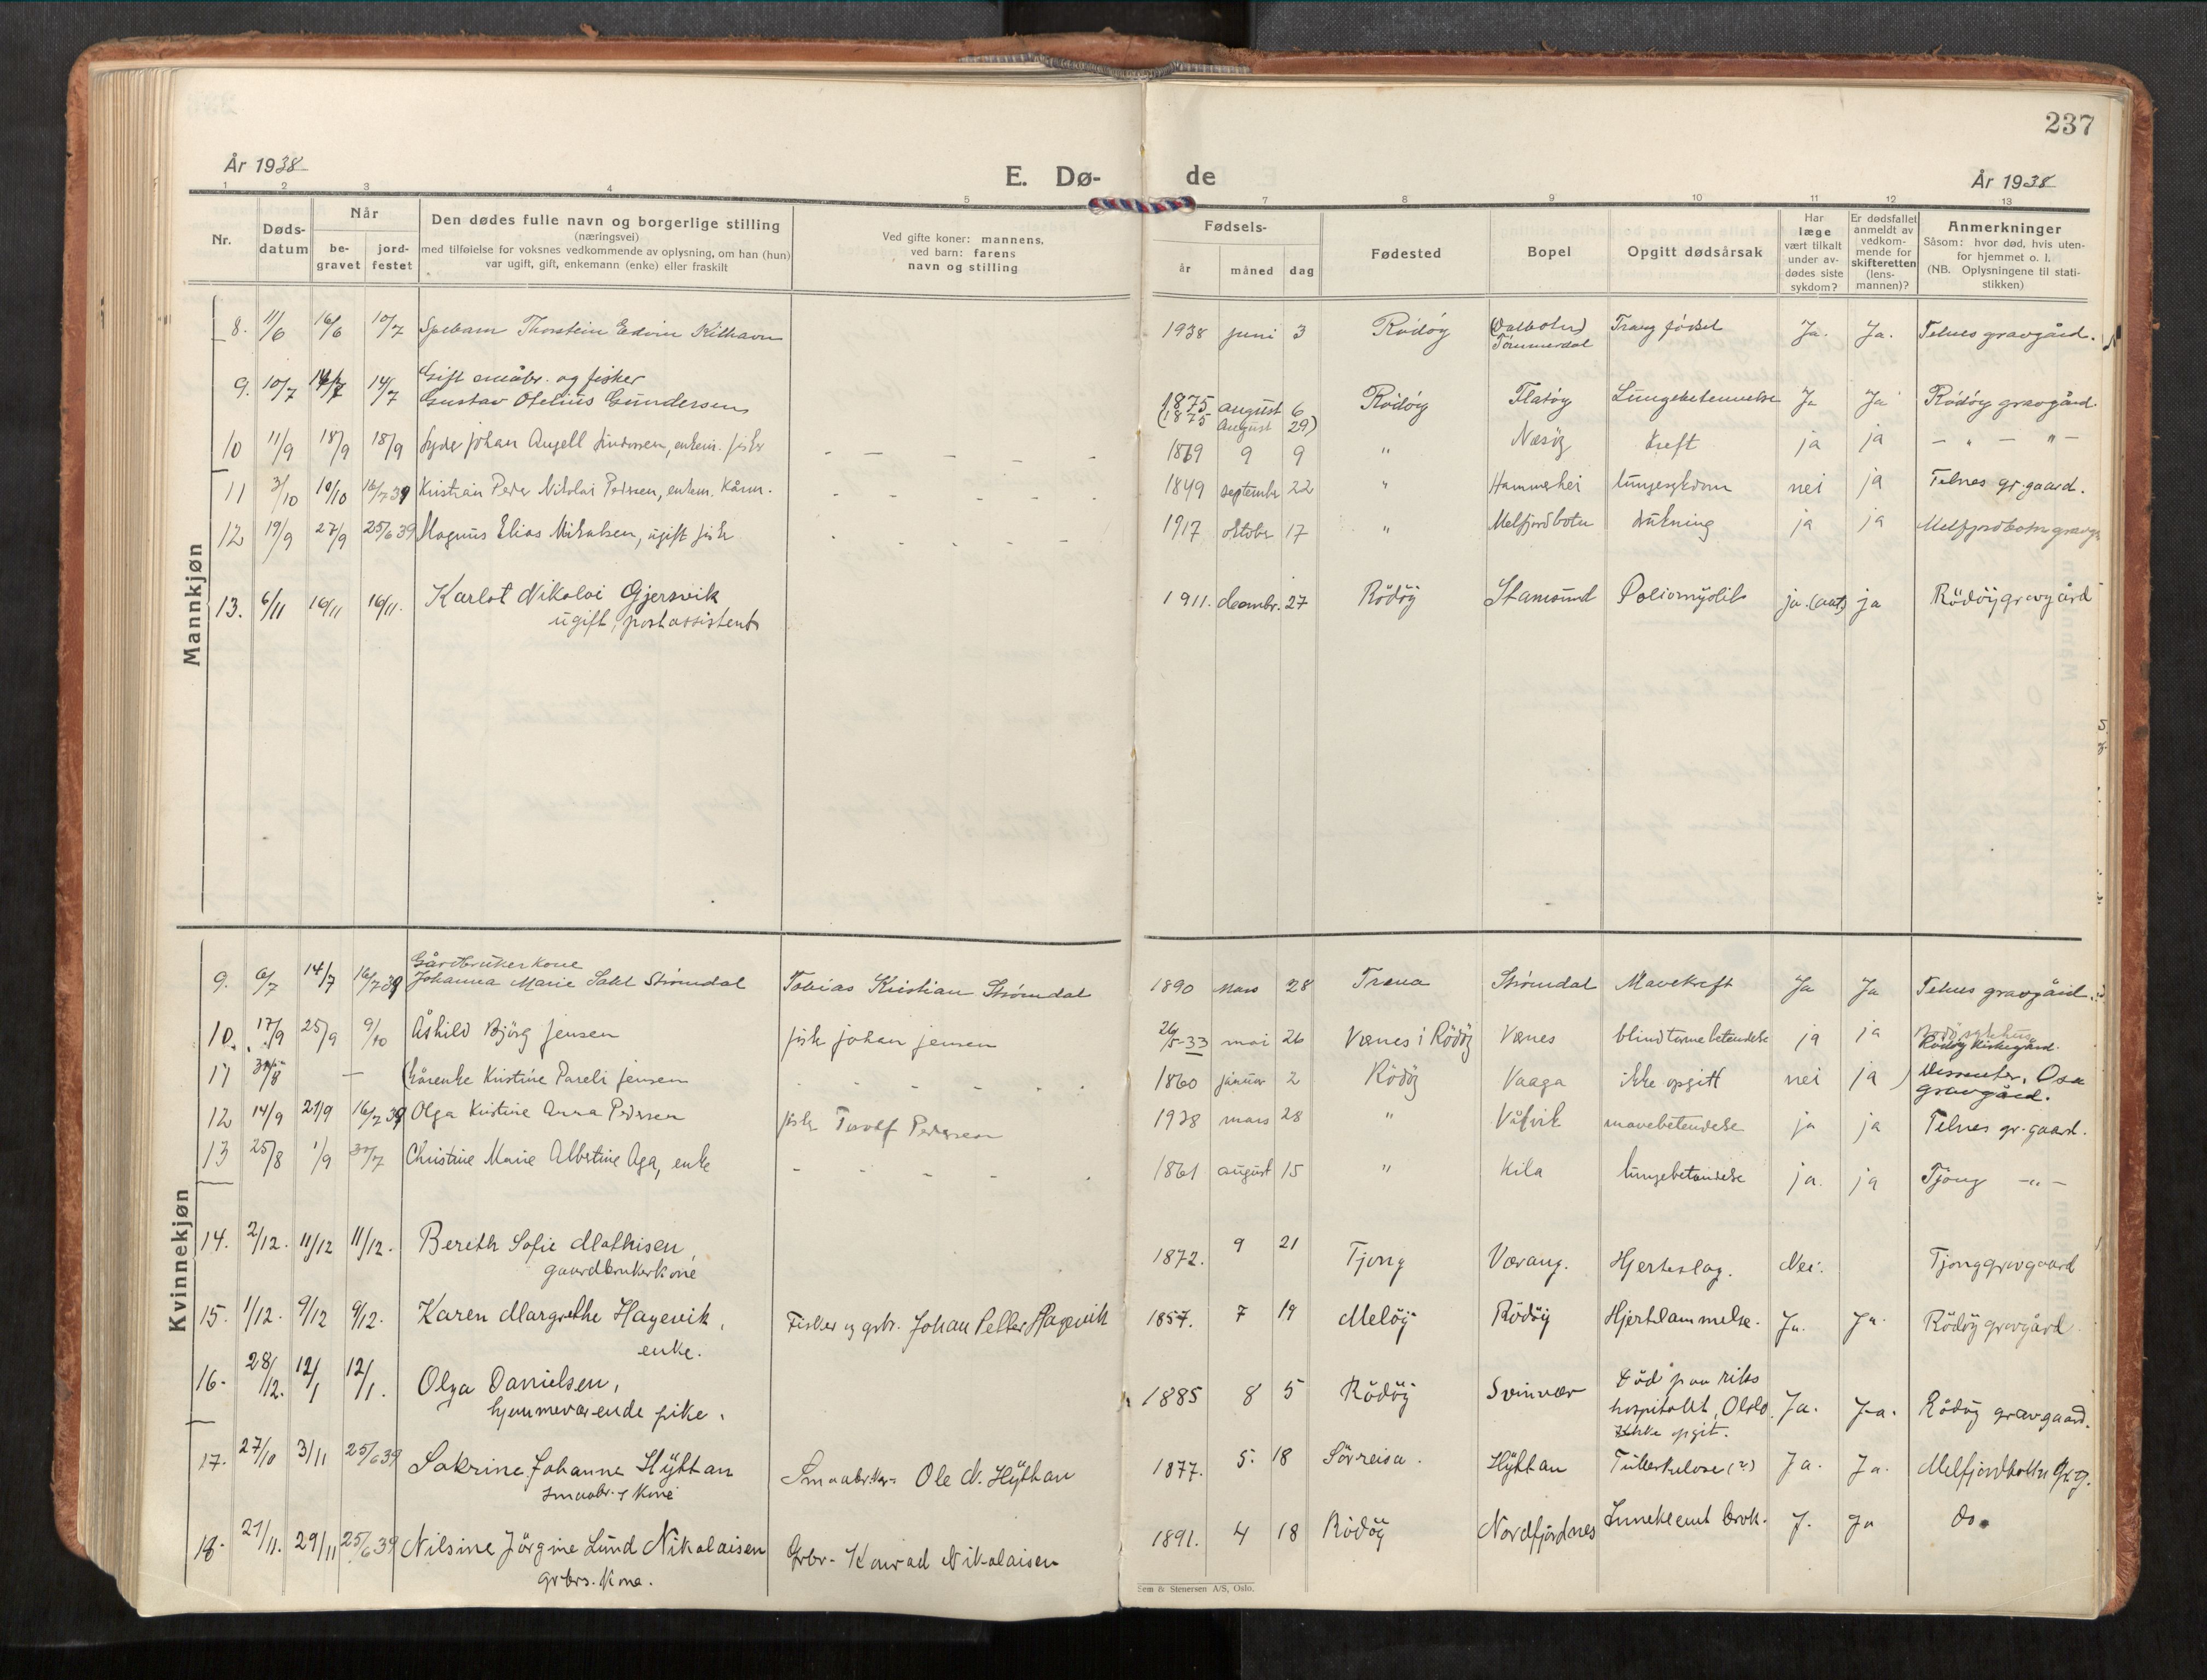 237
År 1938
E. Dø-
de
År 1938
1 2 3 4 5 7 8 9 10 11 12 13
Nr.
Døds-
datum
Når
be-
gravet
jord-
festet
Den dødes fulle navn og borgerlige stilling
(næringsvei)
med tilføielse for voksnes vedkommende av oplysning, om han (hun)
var ugift, gift, enkemann (enke) eller fraskilt
Ved gifte koner: mannens,
ved barn: farens
navn og stilling
Fødsels-
år måned dag
Fødested
Bopel
Opgitt dødsårsak
Har
læge
vært tilkalt
under av-
dødes siste
sykdom?
Er dødsfallet
anmeldt av
vedkom-
mende for
skifteretten
(lens-
mannen)?
Anmerkninger
Såsom: hvor død, hvis uten-
for hjemmet o. l.
(NB. Oplysningene til stati-
stikken)
Mannkjøn
8. 11/6 16/6 10/7 Spebarn Thorstein Edvin Kilhavn 1938 juni 3 Rödöy Tömmerdal Trang födsel Ja. Ja. Telnes gravgård.
Gift småbr. og fisker
9. 10/7 14/7 14/7 Gustav Otelius Gundersen 1875 august 6 Rödöy Flatöy Lungebetennelse Ja Ja Rödöy gravgård.
(1875 August 29)
10 11/9 18/9 18/9 Johan Angell enkem. fisker - - - - - 1869 9 9 " Næsöy kreft ja ja - " - " -
11 3/10 10/10 16/7 39 Kristian Peder Nikolai Pedersen, enkem. kårm. - - - - - 1849 september 22 " Hammerhei lungesykdom nei ja Telnes gr.gaard.
12 19/9 27/9 25/6 39 Magnus Elias Mikalsen, ugift fisker - - - - - 1917 oktober 17 " Melfjordbotn drukning ja ja Melfjordbotn gravg.
13. 6/11 16/11 16/11. Karlot Nikolai Gjersvik 1911. decembr. 27 Rödöy Stamsund Poliomyelit ja. (att) ja Rödöy gravgård
ugift, postassistent
Kvinnekjøn
Gårdbrukerkone
9. 6/7 14/7 16/7 39 Johanna Marie Strömdal Tobias Kristian Strömdal 1890 Mars 28 Træna Strömdal Mavekreft Ja Ja Telnes gravgård.
10. 17/9 25/9 9/10 Åshild Björg Jensen fisker Johan Jensen 26/5-33 mai 26 Værnes i Rödöy Værnes blindtarmbetendelse ja ja Bodö sykehus
Rödöy kirkegård.
11 30/8 - (Kårenke Kristine Pareli Jensen - - - - - 1860 januar 2 Rödöy Vaaga ikke opgitt nei ja) Dissenter. Osa
gravgård.
12 14/9 21/9 16/7 39 Olga Kristine Anna Pedersen fisker Torolf Pedersen 1938 mars 28 " Våtvik mavebetendelse ja ja Telnes gr.gaard.
13 25/8 1/9 30/7 Christine Marie Albertine Aga, enke - - - - - 1861 august 15 " Kila lungebetendelse ja. ja Tjong - " -
14. 2/12. 11/12 11/12. Bereth Sofie Mathisen, 1872. 9 21 Tjong Værang. Hjerteslag. Nei. Tjong gravgaard
gaardbrukerkone
15. 1/12. 9/12 9/12. Karen Margrethe Hagevik, Fisker og grbr. Johan Petter Hagevik 1857. 7 19 Melöy Rödöy Hjertelammelse. Ja. Ja. Rödöy gravgård.
enke.
16. 28/12. 12/1 12/1. Olga Danielsen, 1885 8 5 Rödöy Svinvær Död paa riks
hospitalet, Oslo. Ja. Ja. Rödöy gravgaard.
hjemmeværende pike. Ikke opgit.
17. 27/10 3/11 25/6 39 Sakrine Johanne Hyttan Smaabrker Ole N. Hyttan 1877. 5. 18 Sörreisa. Hyttan Tuberkulose (?) Ja. Ja. Melfjordbotn Grg.
smaabr.s kone
18. 21/11. 29/11 25/6 39 Nilsine Jörgine Lund Nikolaisen Grbr. Konrad Nikolaisen 1891. 4 18 Rödöy Nordfjordnes Inneklemt brok. J. Ja do.
grbrs. kone.
Sem & Stenersen A/S, Oslo.